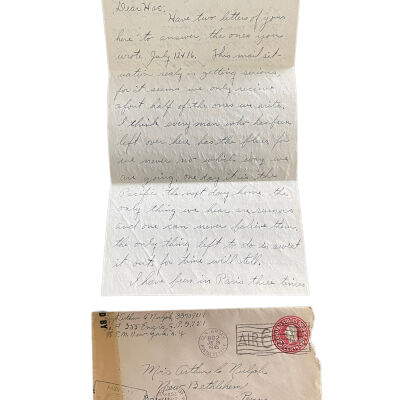 Dear Hae:
Have two letters of yours
here to answer, the ones you
wrote July 12 & 16. This mail sit-
uation really is getting serious
for it seems we only receive
about half of the ones we write,
I think every man who has been
left over here has the blues for
we never no which way we
are going, one day it is the
Pacific the next day home, the
only thing we hear are rumors
and one can never believe them,
the only thing left to do is sweat
it out for time will tell.
I have been in Paris three times
D BY
Arthur C Ralph
355 Engrs. A.P.O.
P.M. New York, N.Y.
802
1945
AIR
Mrs Arthur C Ralph
New Bethlehem
Penna